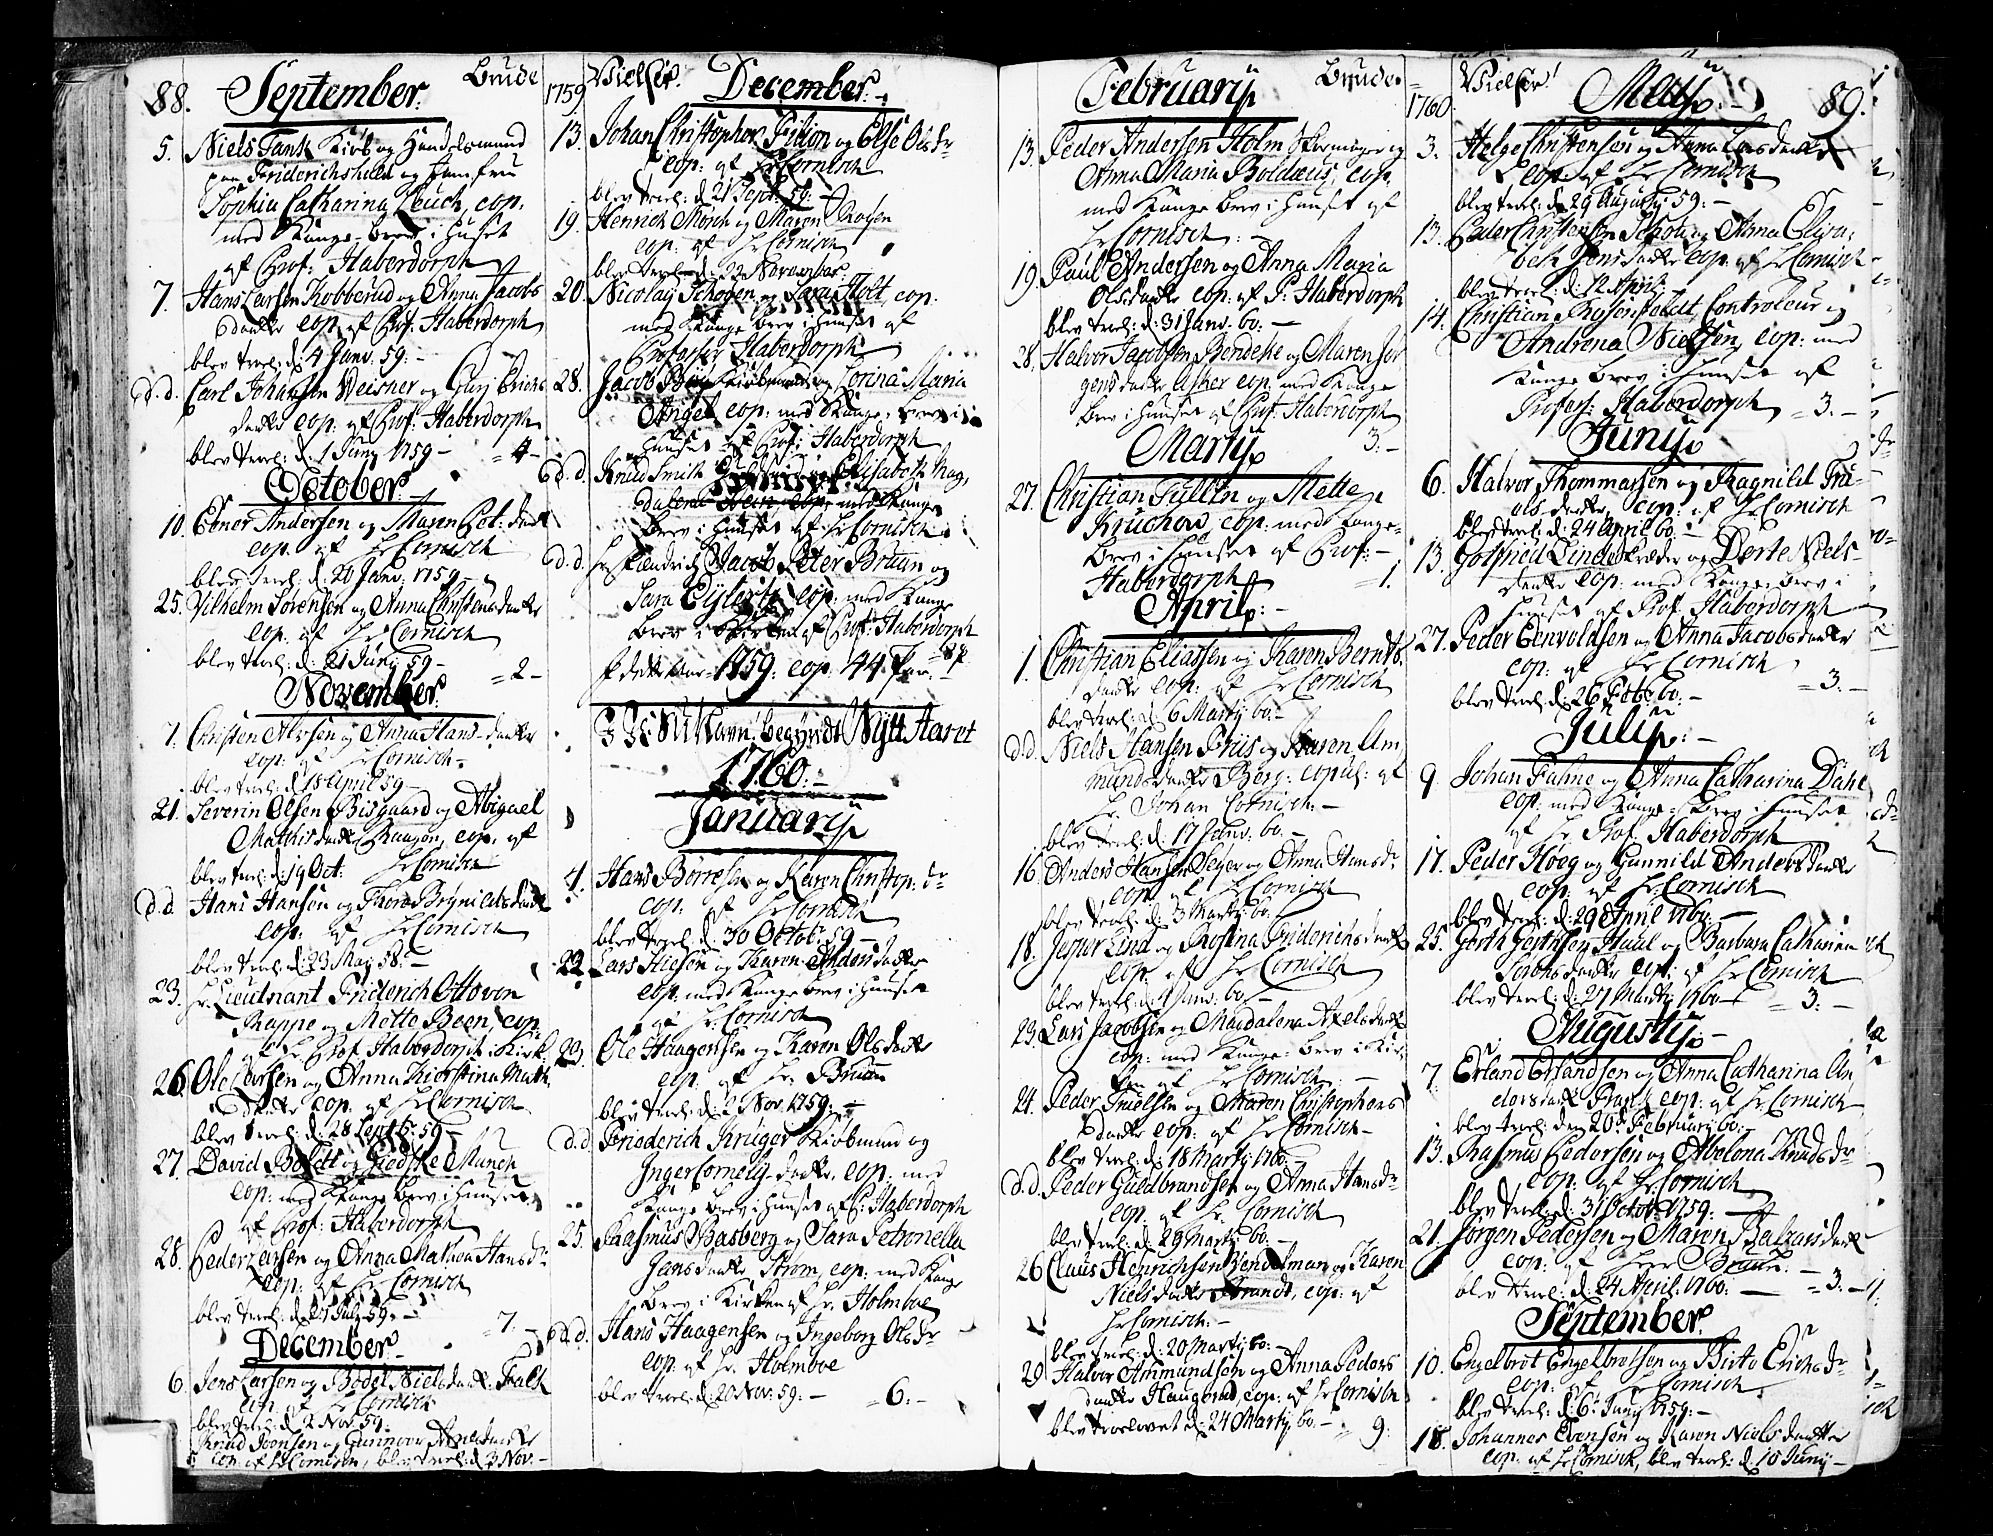 88. September. Brude
5. Niels Tank Kiøb og Handelsmand
paa Friderichshald og Jomfru
Sophia Catharina Leuch, cop:
med Konge-brev i Huset
af Prof: Haberdorph
7. Hans Larsen Kobberud og Anna Jacobs
datter cop. af Prof. Haberdorph
blev trol: d. 4 Janv. 59.-
d.d. Carl Johansen Weisner og Guri Erichs
datter cop. af Prof. Haberdorph
blev trol: d. 1 Junij 1759 - = 4 -
October.
10. Ebner Andersen og Maren Pet: datt
cop. af Hr Cornisch
blev trol: d. 20 Janv. 1759
25. Vilhelm Sørensen og Anna Christensdatter
cop. af Hr Cornisch
blev trol: d. 21 Junij 59 - = 2 -
November.
7. Christen Alvsen og Anna Hans-datter
cop. af Hr Cornisch.
blev trol: d. 18 April 59 -
21. Severin Olsen Bisgaard og Abigael
Mathisdatter Raagøe, cop. af
blev trol: d: 19 Oct. Hr Cornisch
d.d. Hans Hansen og Thore Brynildsdatter
cop. af Hr Cornisch
blev trol: d: 23 Maj 58. -
23. Hr. Lieutnant Friderich Otto von
Rappe og Mette Been, cop.
af Hr. Prof. Haberdorph i Kirk.
26. Ole Larsen og Anna Kierstina Math.
datter cop. af Hr Cornisch
blev trol: d. 28 Septbr 59 -
27. David Boldt og Giedske Munch
cop. med Konge brev i Huuset
af Prof: Haberdorph
28. Peder Larsen og Anna Mathea Hansdr
cop. af Hr Cornisch
blev trol: d. Julij 59. - = 7. -
December.
6. Jens Larsen og Bodel Nielsdatt: Falk
cop. af Hr Cornisch
blev trol: d. 2 Nov. 59.
Knud Joensen og Gunnoor datter
cop. af Hr Cornisch, blev trol: d. 3 Nov. -
1759. Vielser. December. -
13. Johan Christopher og Else Olsdr
cop. af Hr Cornisch
blev trol: d. 21 Sept. 59. -
19. Henrich Mørch og Maren Rosen
cop: af Hr Cornisch
blev trol: d: 22 November.
20. Nicolay Schogen og Sara Holt, cop.
med Konge brev i Huuset af
Professor Haberdorph
28. Jacob Kiøbmand og Corina Maria
Angel cop: med Konge-brev i
Huuset af Prof: Haberdorph
d.d. Knud Smith og Elisabeth Mag,
dalena cop: med Konge
brev i Huuset af Hr Cornisch
d.d. Hr Jacob Peter Bruun og
Sara cop: med Konge
brev i Kirken af Prof: Haberdorph
I dette aar 1759. cop. 44. Par. = 8 -
I Js: Navn! begyndt Nytt Aaret
1760. -
Januarij
4. Hans Børresen og Karen Christop: dr
cop. af Hr Cornisch
blev trol: d. 30 Octobr 59 -
22. Lars Hiesen og Karen Andersdatter
cop. med Konge brev i Huuset
af Hr. Cornisch
23. Ole Haagensen og Karen Olsdatter
cop. af Hr. Bruun
blev trol: d. 2 Nov. 1759. -
d.d. Friederich Krüger Kiøbmand og
Inger Cornelij-datter, cop. med
Konge brev i Huuset af P. Haberdorph
25. Rasmus Basberg og Sara Petronella
Jansdatter Strøm, cop: med Konge
brev i Kirken af Hr. Holmboe
d.d. Hans Haagensen og Ingeborg Olsdr
cop: af Hr. Holmboe
blev trol: d. 20 Nov: 59. - = 6. -
Februarij Brude.
13. Peder Andersen Holm Skomager og
Anna Maria Boldæus, cop.
med Konge brev i Huuset af
Hr Cornisch. -
19. Paul Andersen og Anna Maria
Olsdatter cop. af P: Haberdorph
blev trol: d: 31 Janv. 60. -
28. Halvor Jacobsen Bendeke og Maren Jør
gensdatter Asker cop: med Konge
brev i Huuset af Prof. Haberdorph
Martij 3. -
27. Christian Tullin og Mette
Kruchow, cop: med Konge-
brev i Huuset af Prof. -
Haberdorph = 1.
April. -
1. Christian Eliassen og Karen Berntz.
datter cop: af Hr Cornisch
blev trol: d. 6 Martij 60. -
d.d. Niels Hansen Friis og Karen Am
mundsdatter Borg: copul: af
Hr. Johan Cornisch. -
blev trol: d: 17 Janv. 60. -
16. Anders Hansen Seyer og Anna Hansdr
cop. af Hr Cornisch
blev trol: d. 3 Martij 60.
18. Jesper Lind og Rosina Friderichsdatter
cop. af Hr Cornisch
blev trol: d: Janv. 60. -
23. Lars Jacobsen og Magdalena Axelsdatt
cop: med Konge-brev i Kir.
ken af Hr Cornisch
24. Peder Truelsen og Maren Christophers
datter cop: af Hr Cornisch -
blev trol: d: 18 Martij 1760.
d.d. Peder Guldbrandsen og Anna Hansdr
cop. af Hr. Cornisch
blev trol: d. 29 Martij 60. -
26. Claus Henrichsen Bendelman og Karen
Nielsdatter Brandt, cop: af
Hr Cornisch. -
blev trol: d: 20 Martij 60. -
29. Halvor Ammundsen og Anna Peders
datter Haugerud, cop: af Hr Cornisch
blev trolovet d: 24 Martij. 60. - = 9.
1760. Vielser! Maij. - 89.
3. Helge Christensen og Anna Larsdatter
cop: af Hr Cornisch
blev trol: d: 29 Augusti 59: -
13. Peder Christensen Schou og Anna Elisa,
beth Jensdatter cop: af Hr Cornisch
blev trol: d: 12 April. -
14. Christian Rosenfeldt, Controleur og
Andrena Nielsen, cop: med
Konge brev i Huuset af
Profess: Haberdorph = 3. -
Junij.
6. Halvor Thommassen og Ragnild Tru=
olsdatter, cop: af Hr Cornisch
blev trol: d: 24 April 60. -
13. Gotfried Linde Skræder og Dorte Niels-
datter cop: med Konge-brev i
Huuset af Prof. Haberdorph
27. Peder Eenvoldsen og Anna Jacobsdatter
cop: af Hr Cornisch
blev trol: d: 26 Febr 60. - = 3. -
Julij. -
9. Johan Fahne og Anna Catharina Dahl
cop: med Konge-brev i Huuset
af Hr. Prof. Haberdorph
17. Peder Høeg og Gunnild Andersdatter
cop. af Hr: Cornisch
blev trol: d: 29 April 1760. -
25. Giørth Giørthsen Huul og Barbara Catharina
datter cop: af Hr Cornisch
blev trol: d: 27 Martij 1760 - = 3: -
Augustij. -
7. Erland Erlandsen og Anna Catharina An,
dersdatt Frank, cop: af Hr Cornisch
blev trol: den 20de Februarij 60. -
13. Rasmus Pedersen og Abelona Knudsdr
cop: af Hr Cornisch
blev trol: d. 31 Octobr 1759. -
21. Jørgen Pedersen og Maren Balzersdatt
cop: af Herr Bruun. -
blev trol: d. 24 April 1760: - = 3: -
September.
10. Engelbret Engelbretsen og Birte Erichsdr
cop: af Hr Cornisch
blev trol: d: 6te Junij 1759. -
18. Johannes Evensen og Karen Nielsdatter
cop: af Hr Cornisch, blev trol: d: 10 Junij -